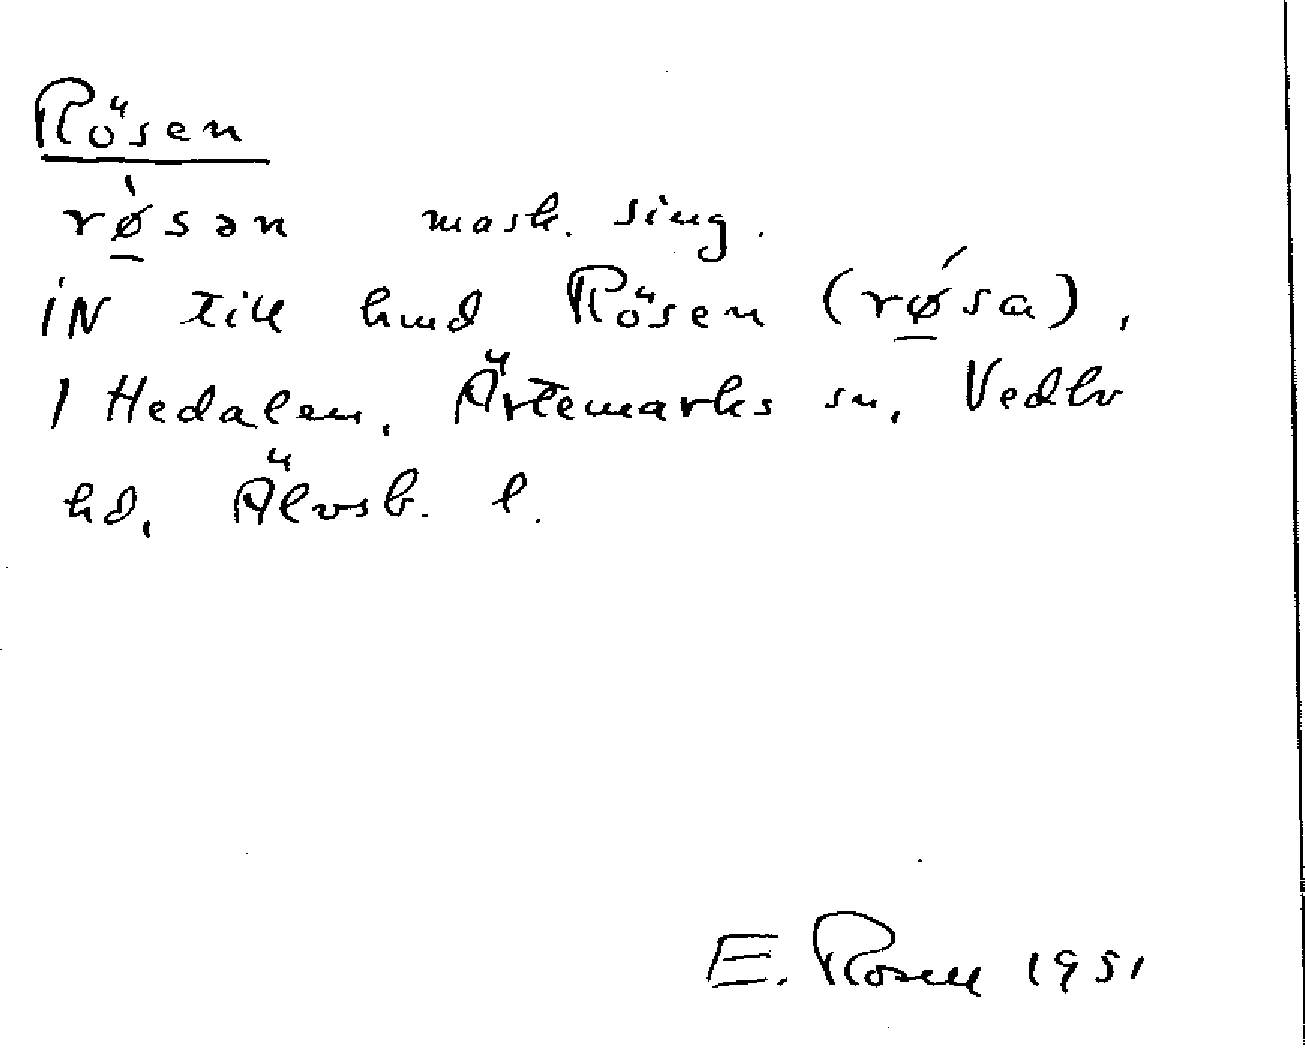 Rösen
rø̲̀sən mask. sing.
IN till hmd Rösen (rǿ̲sa),
1 Hedalen, Ärtemarks sn, Vedbo
hd, Älvsb. l.
E. Rosell 1951